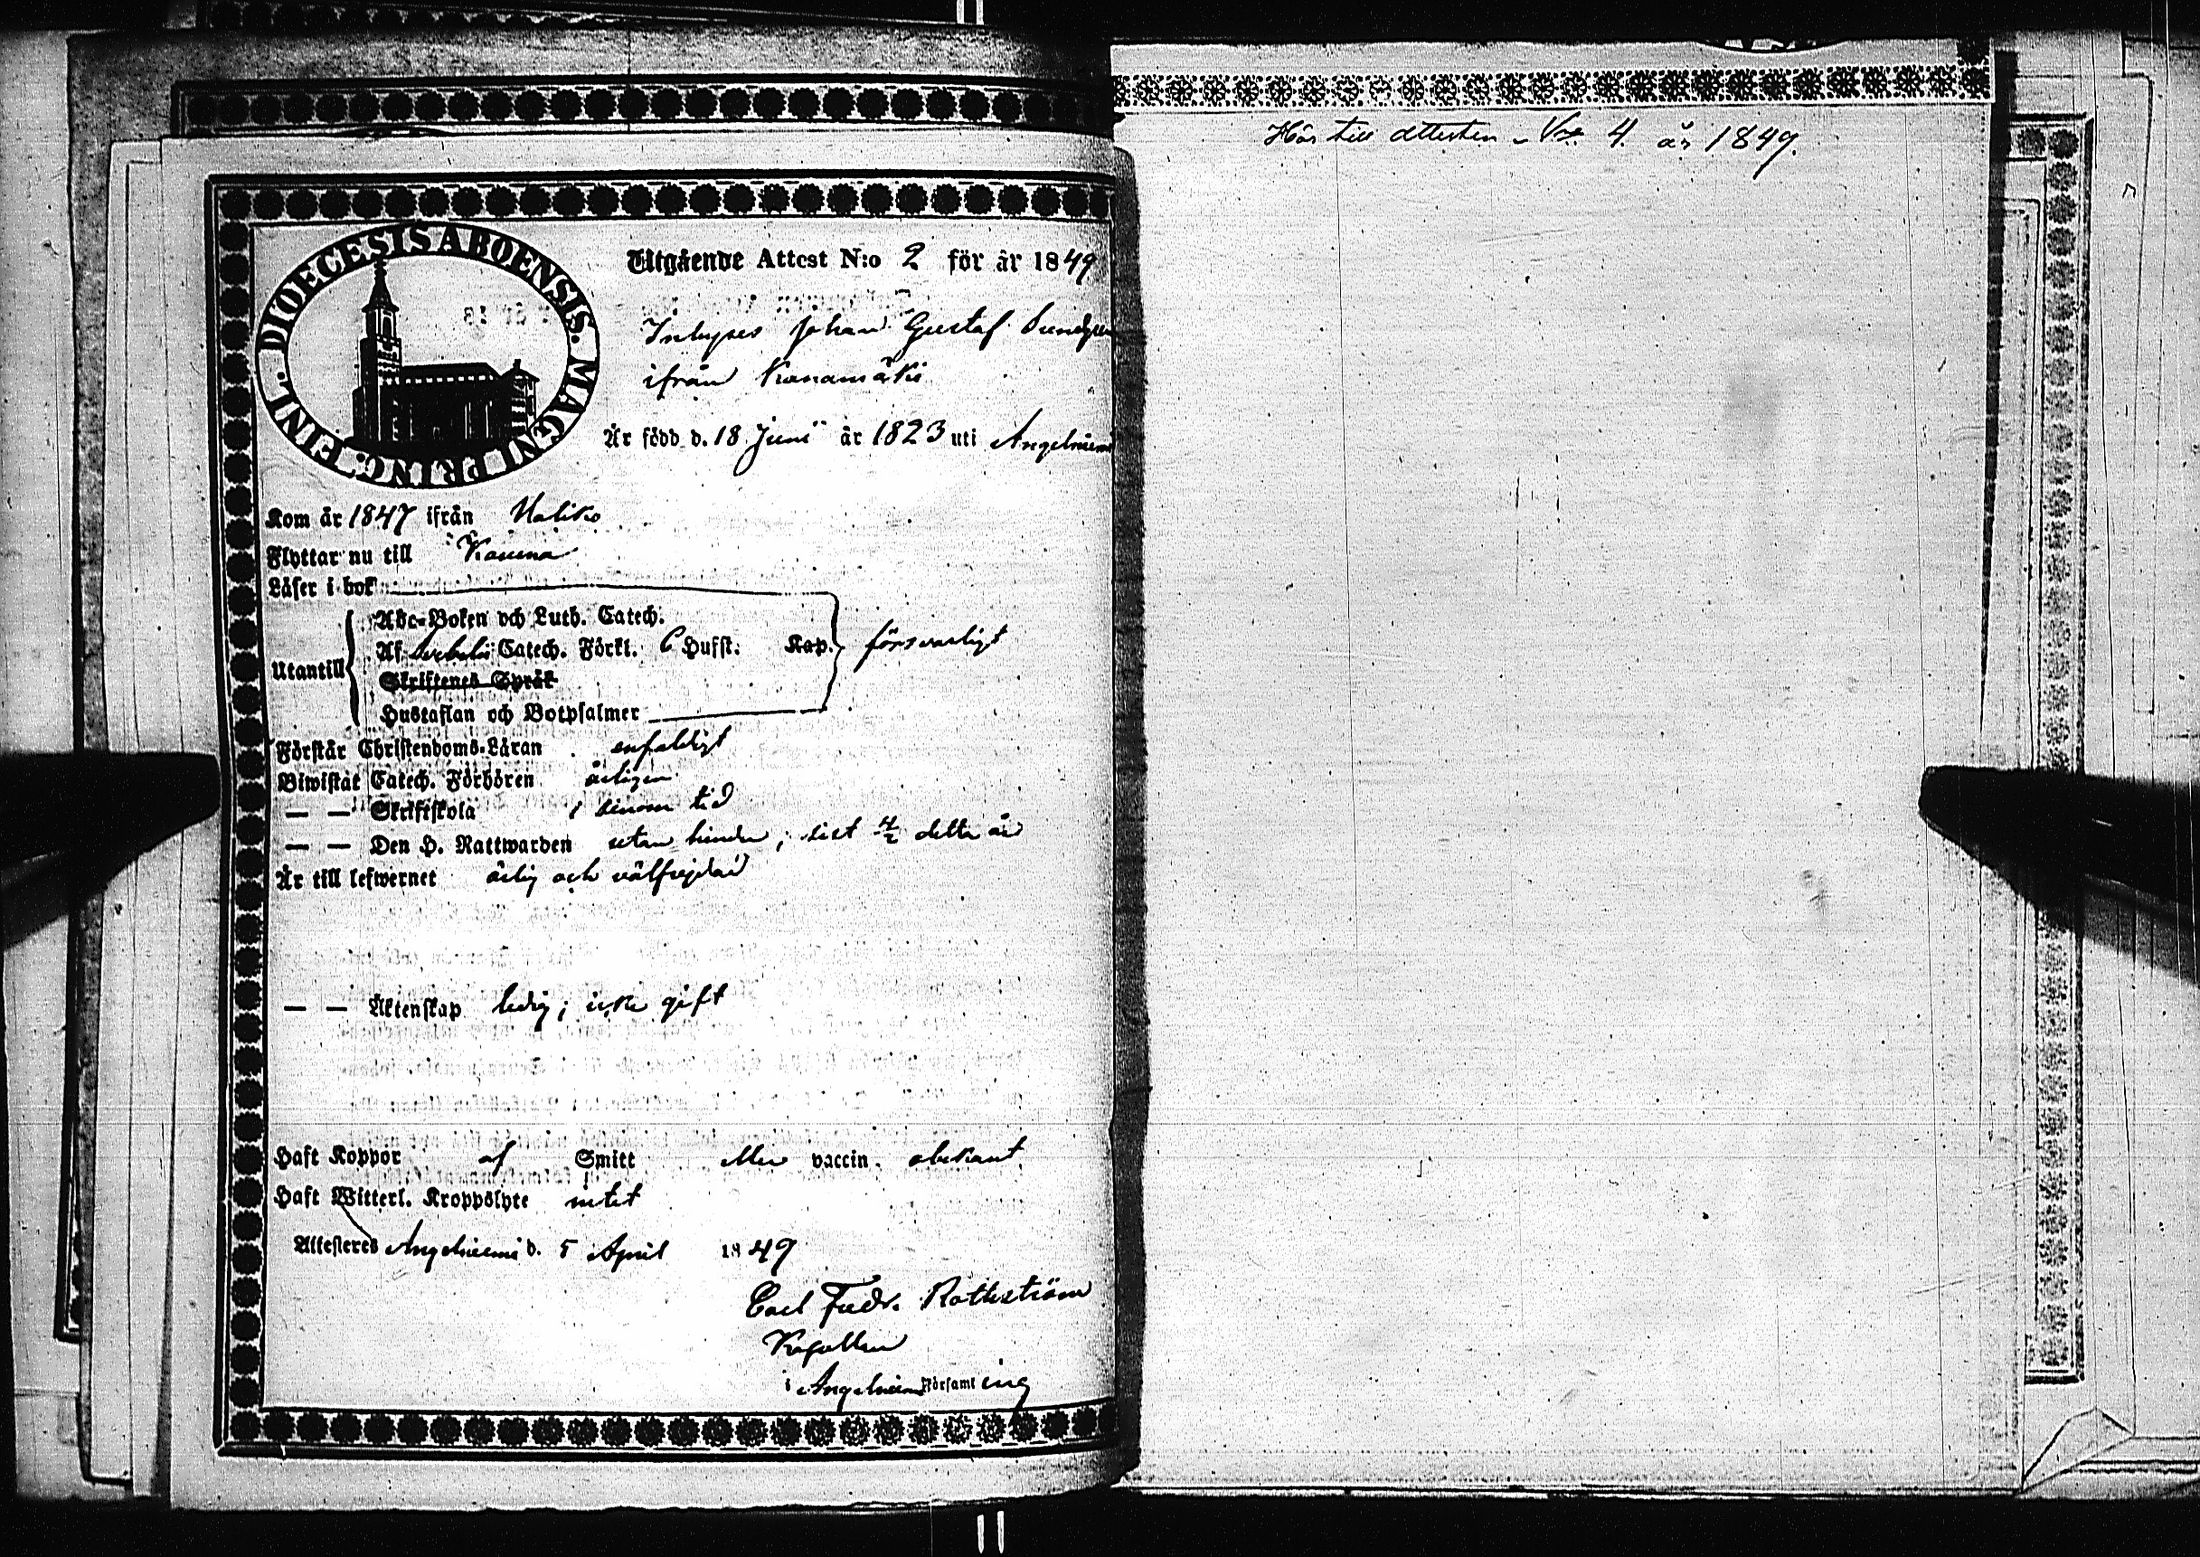 DIOECESIS ABOENSIS. MAGNI PRINC. FINL.
Utgående Attest N:o 2 för år 1849
Inhyses Johan Gustaf Sundgren
ifrån
Är född d. 18 Juni år 1823 uti Angelniemi
Kom år 1847 ifrån Haliko
Flyttar nu till
Läser i bok
Abc-Boken och Luth. Catech.
Af Svebelii Catech. Förkl. 6 Hufst. Kap. försvarligt
Utantill
Skriftenes Språk
Hustaflan och Botpsalmer
Förstår Christendoms-Läran enfaldigt
Biwistat Catech. Förhören årligen
— — Skriftskola i sinom tid
— — Den H. Nattwarden utan hinder, sist 4/2 detta år
Är till lefwernet ärlig och välfrejdad
— — Äktenskap ledig; icke gift
Haft Koppor af Smitt eller vaccin. obekant
Haft Witterl. Kroppslyte intet
Attesteras Angelniemi d. 5 April 1849
Carl Fredr. Rottström
i Angelniemi Församling
Hör till attesten No 4. år 1849.